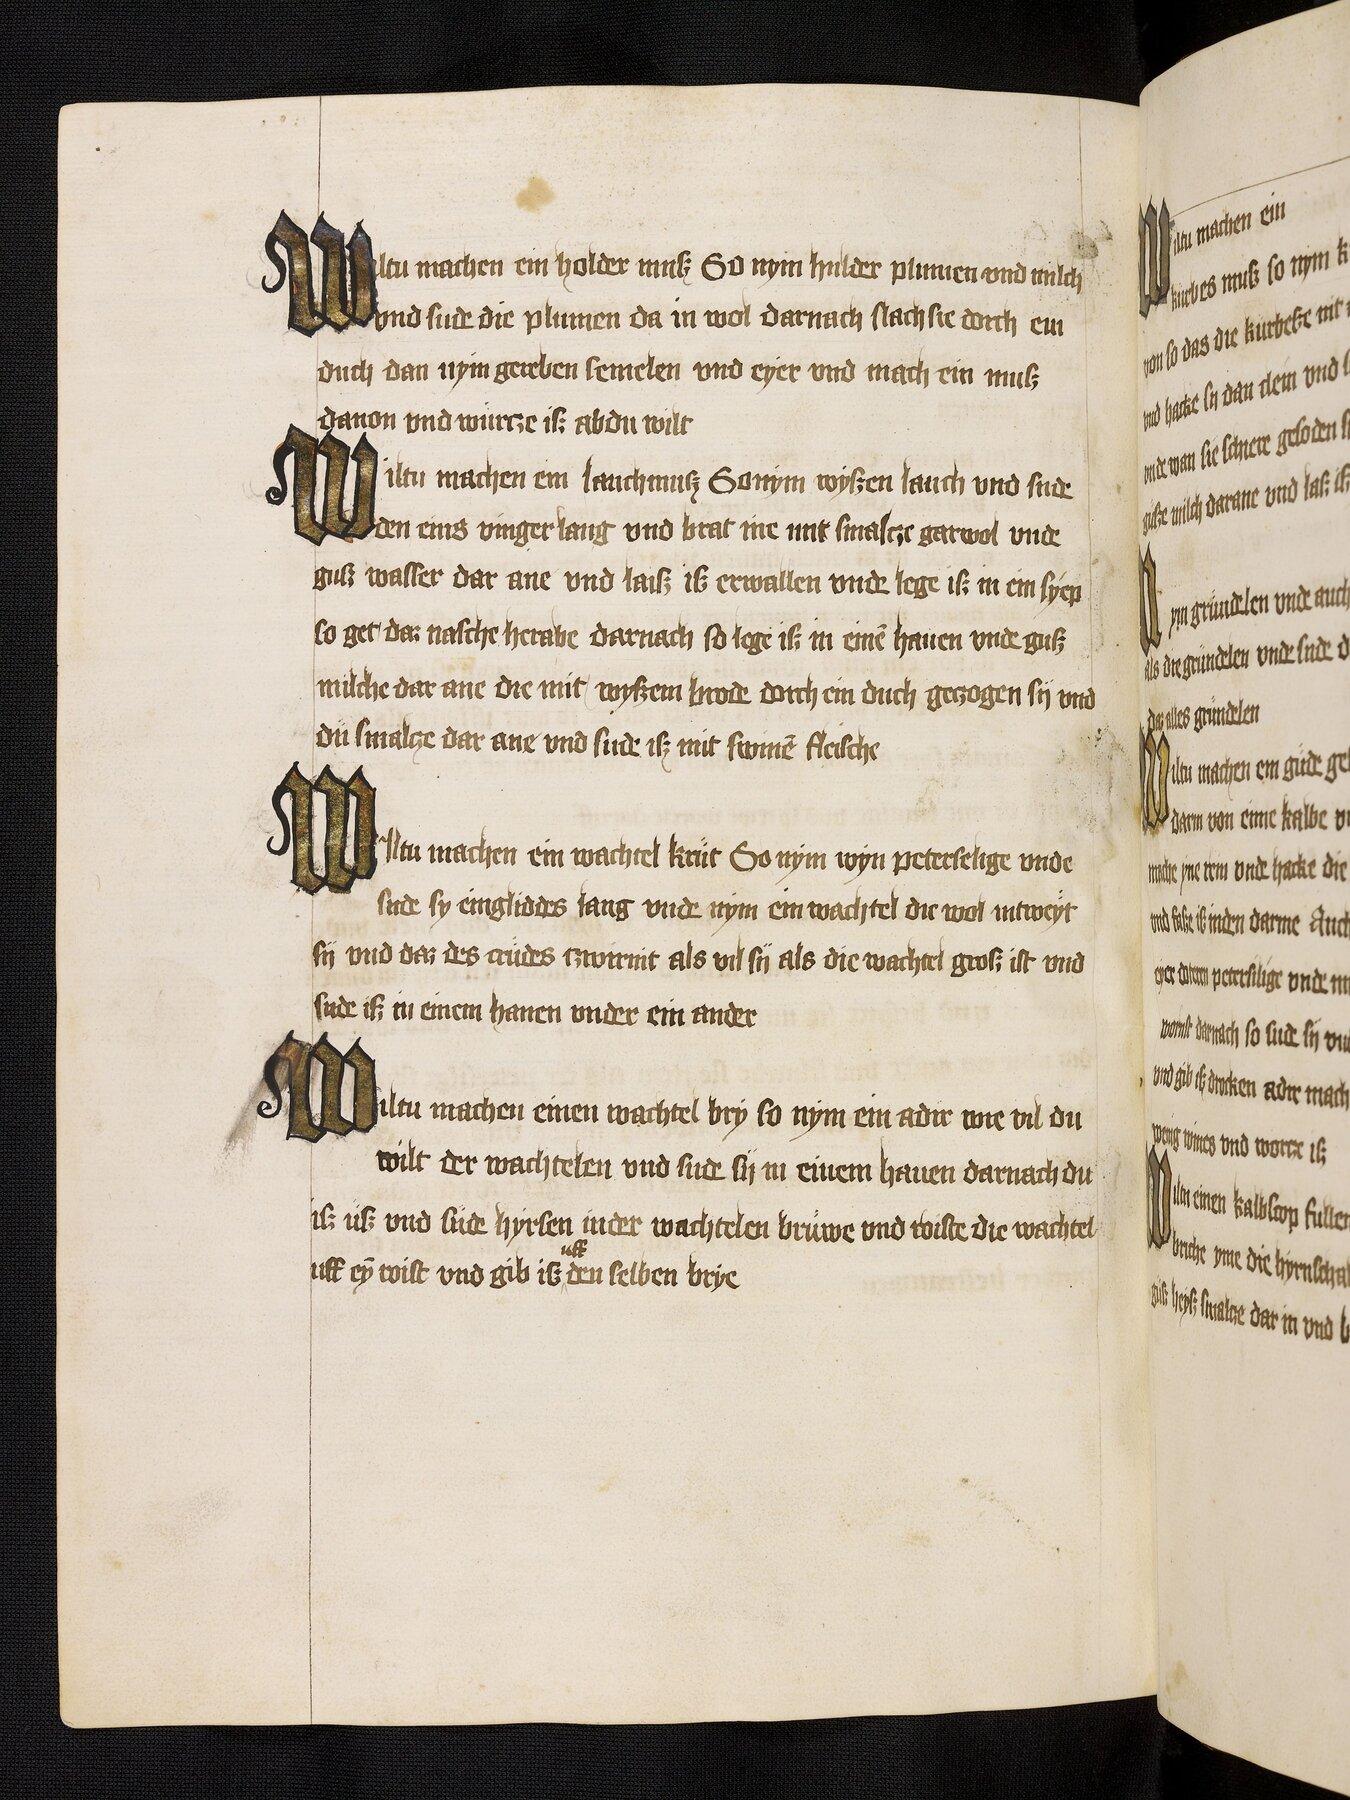 Wiltu machen ein holder muß So nym hulder plumen vnd milch
vnd sude die plumen da in wol darnach slach sie dorch ein
duch dan nym gereben semelen vnd eyer vnd mach ein muß
dauon vnd wurcze iß ab du wilt
Wiltu machen ein lauchmuß So nym wyßen lauch vnd sude
den eins vinger lang vnd brat ine mit smalcze gar wol vnde
guß wasser dar ane vnd laiß iß erwallen vnde lege iß in ein syep
so get daz nasche herabe darnach so lege iß in einē hauen vnde guß
milche dar ane die mit wyßem brode dorch ein duch geczogen sij vnd
dü smalcze dar ane vnd sude iß mit swinē fleische
Wiltu machen ein wachtel krüt So nym wyn peterselige vnde
sude sy eingliddes lang vnde nym ein wachtel die wol intweyt
sij vnd daz des crüdes czwirnit als vil sij als die wachtel groß ist vnd
sude iß in einem hauen vnder ein ander
Wiltu machen einen wachtel bry so nym ein adir wie vil du
wilt der wachtelen vnd sude sij in einem hauen darnach du
iß üß vnd süde hyrsen in der wachtelen brüwe vnd roiste die wachtel
uff
uff eȳ roist vnd gib iß den selben brye
Wiltu machen ein
kurbes muß so nym
von so das die kurbeße nit
vnd hacke sij dan clein vnd
vnde wan sie schiere gesoden
guße milch darane vnd laß iß
Nym gründelen vnde auch
als die gründelen vnde sude
daz alles gründelen
Wiltu machen ein güde
darm von eime kalbe
mache yne rein vnde hacke die
vnd faße iß in den darme Auch
eyer doteren petersilige vnde
worst darnach so sude sij
vnd gib iß drocken adir mach
wenig wines vnd worcze iß
Wiltu einen kalbscop fullen
briche yme die hyrnschal
giß heyß smalcze dar in vnd